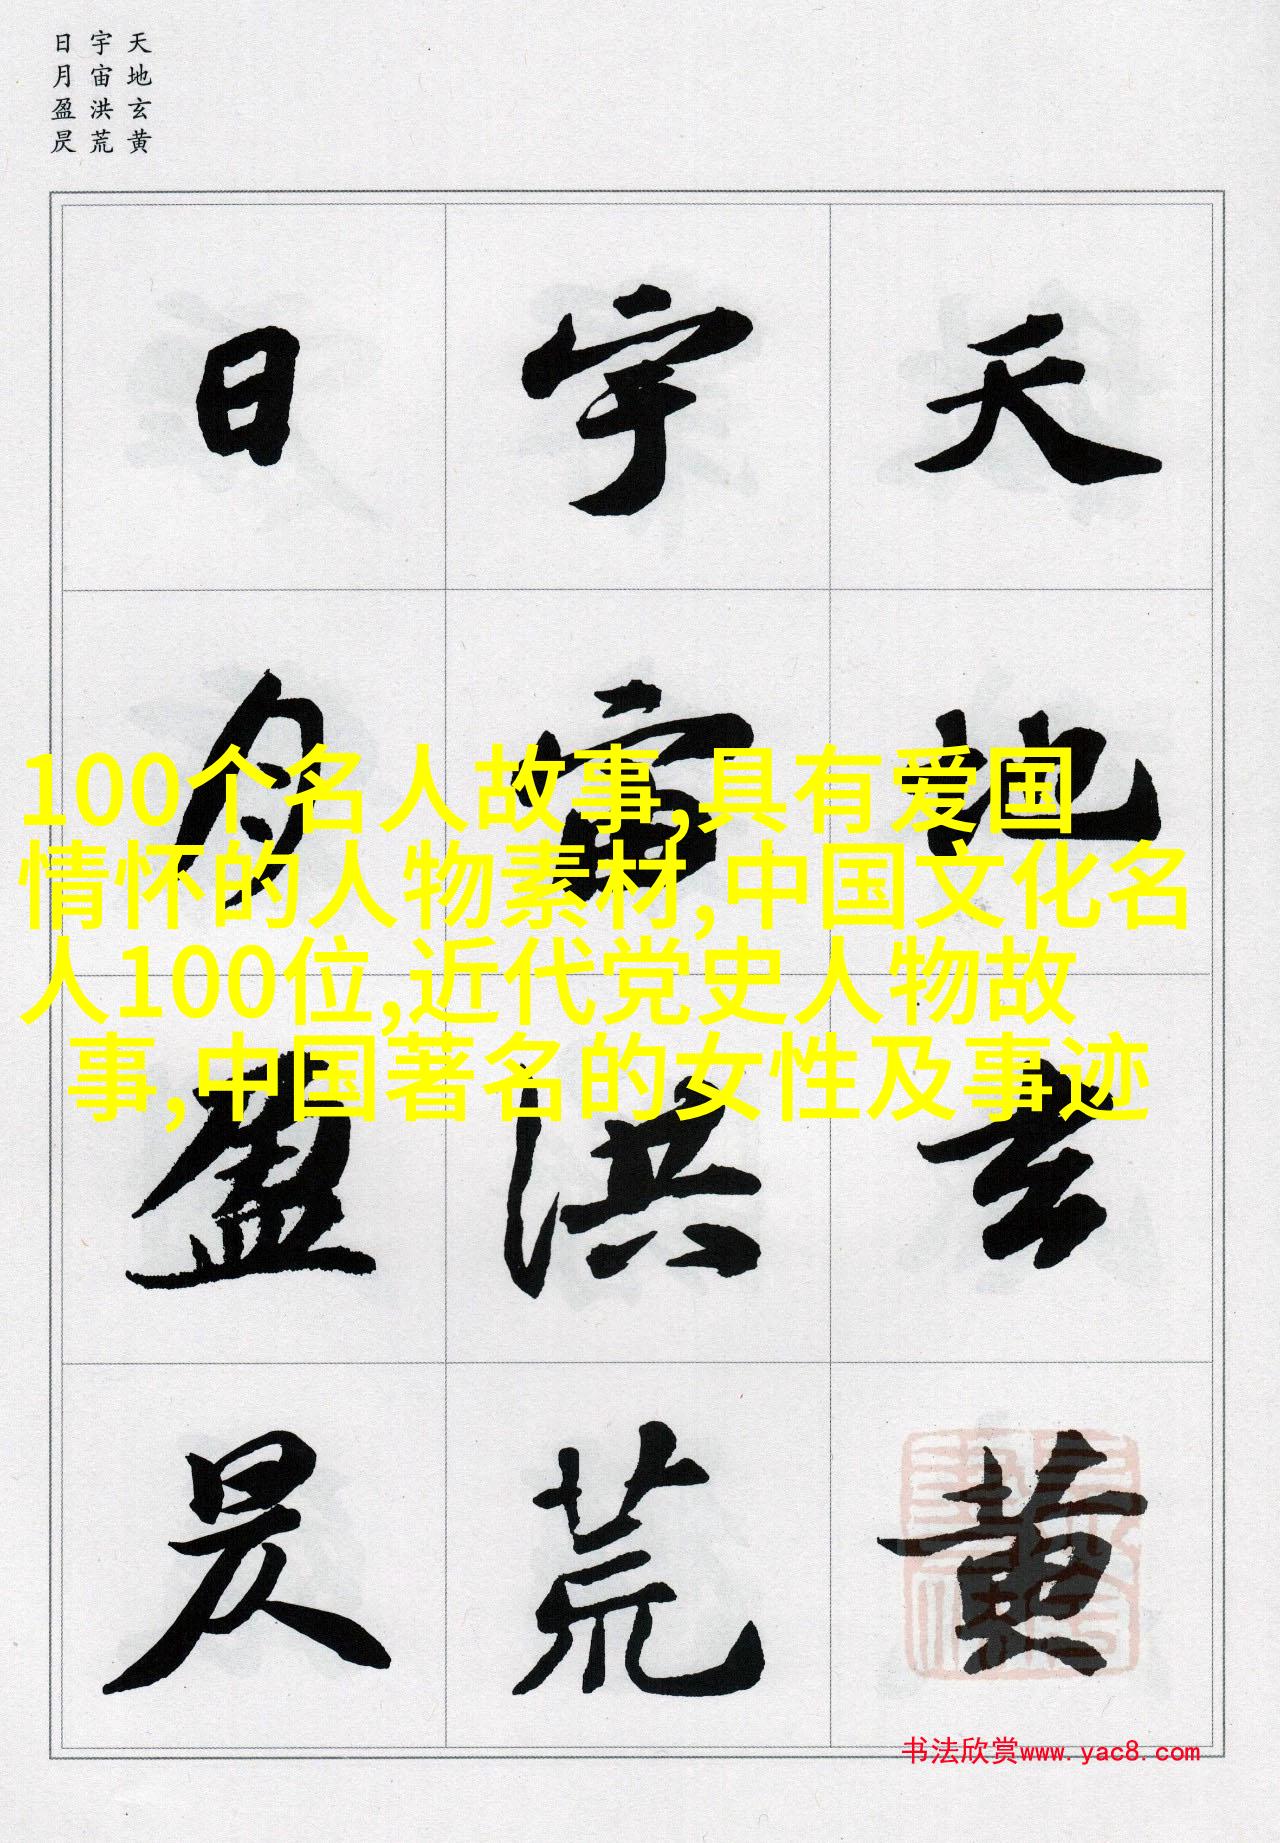 天地玄黄
宇宙洪荒
日月盈昃
天地玄黄
宇宙洪荒
日月盈昃
100个名人故事,具有爱国
情怀的人物素材,中国文化名
人100位,近代党史人物故
事,中国著名的女性及事迹
书法欣赏www.yac8.com